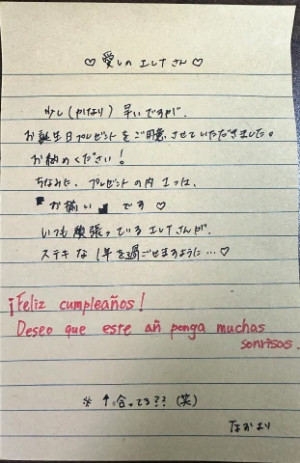 ♡ 愛しの エレナ さん ♡
少し (かなり) 早いですが、
お誕生日プレゼントをご用意させていただきました。
お納めください!
ちなみに、プレゼントの内1つは、
お揃い です ♡
いつも頑張っているエレナさんが、
ステキな1年を過ごせますように… ♡
¡Feliz cumpleaños!
Deseo que este añ ponga muchas
sonrisas.
※ ↑合ってる?? (笑)
なかより